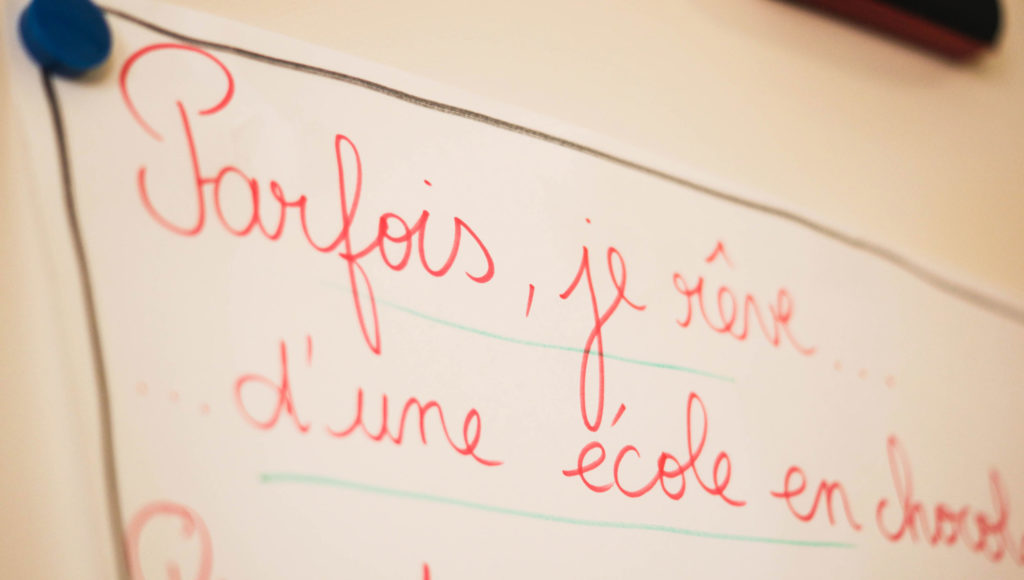 Parfois, je rêve...
...d'une école en chocol